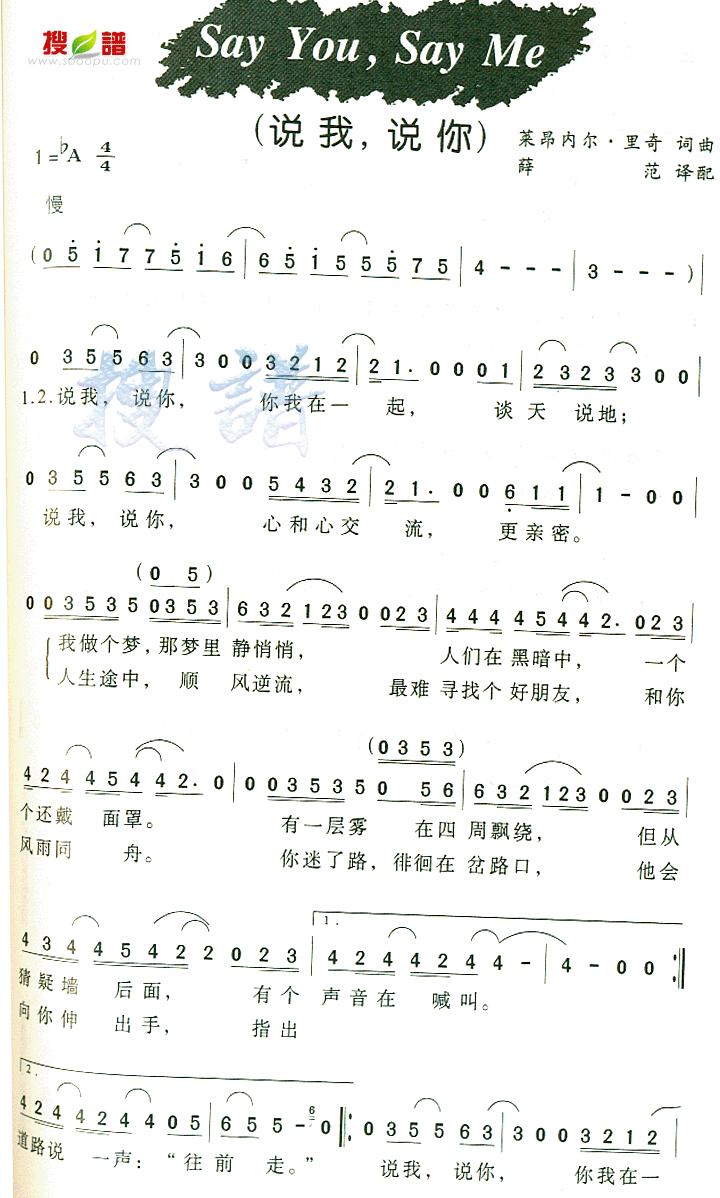 搜谱
www.sooopu.com
Say You, Say Me
(说我,说你)
莱昂内尔·里奇 词曲
薛 范 译配
1=♭A 4/4
慢
(0 5 1 7 7 5 1 6 | 6 5 1 5 5 5 7 5 | 4 - - - | 3 - - - )|
0 3 5 5 6 3 | 3 0 0 3 2 1 2 | 2 1. 0 0 0 1 | 2 3 2 3 3 0 0 |
1.2.说我, 说你, 你我在一 起, 谈天 说地;
0 3 5 5 6 3 | 3 0 0 5 4 3 2 | 2 1. 0 0 6 1 1 | 1 - 0 0 |
说我, 说你, 心和心交 流, 更亲密。
(0 5)
0 0 3 5 3 5 0 3 5 3 | 6 3 2 1 2 3 0 0 2 3 | 4 4 4 4 5 4 4 2. 0 2 3 |
我做个梦,那梦里 静悄悄, 人们在 黑暗中, 一个
人生途中, 顺 风逆流, 最难 寻找个 好朋友, 和你
(0 3 5 3)
4 2 4 4 5 4 4 2. 0 | 0 0 3 5 3 5 0 5 6 | 6 3 2 1 2 3 0 0 2 3 |
个还戴 面罩。 有一层雾 在四 周飘绕, 但从
风雨同 舟。 你迷了路, 徘徊在 岔路口, 他会
1.
4 3 4 4 5 4 2 2 0 2 3 | 4 2 4 4 2 4 4 - | 4 - 0 0 :||
猜疑墙 后面, 有个 声音在 喊叫。
向你伸 出手, 指出
2.
4 2 4 4 2 4 4 0 5 | 6 5 5 - 6 0 ||: 0 3 5 5 6 3 | 3 0 0 3 2 1 2 |
道路说 一声:“往前 走。” 说我, 说你, 你我在一